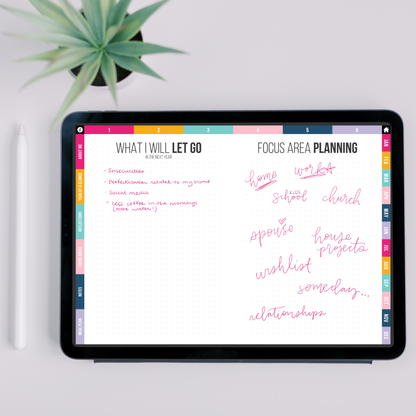 1 2 3 4 5 6
WHAT I WILL LET GO
IN THE NEXT YEAR
- Insecurities
- Perfectionism related to my home
- Social media
* Less coffee in the mornings
(more water!)
FOCUS AREA PLANNING
home works
kids
school church
spouse
house
projects
wishlist
someday...
relationships
JAN
FEB
MAR
APR
MAY
JUN
JUL
AUG
SEP
OCT
NOV
DEC